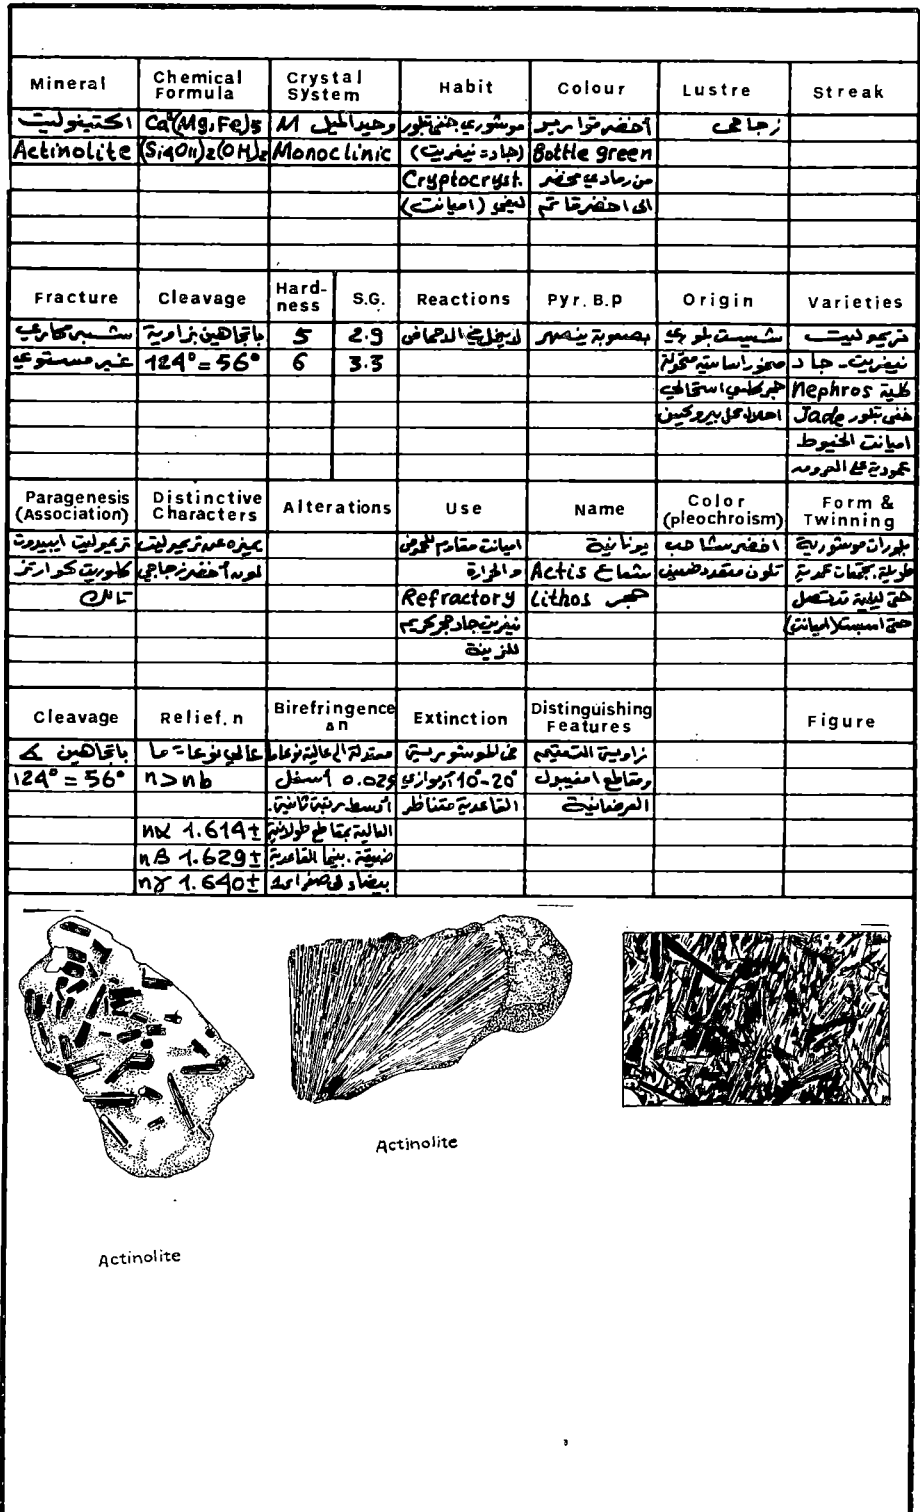 Mineral | Chemical Formula | Crystal System | Habit | Colour | Lustre | Streak
اكتينوليت | Ca²(Mg,Fe)5 | وحيد الميل M | موشوري خفي تبلور | أخضر قوارير | زجاجي
Actinolite | (Si4O11)2(OH)2 | Monoclinic | (جاد = نيفريت) | Bottle green
Cryptocryst. | من رمادي مخضر
ليفي (اميانت) | الى اخضر قاتم
Fracture | Cleavage | Hard-ness | S.G. | Reactions | Pyr. B.p | Origin | Varieties
شبه محاري | باتجاهين بزاوية | 5 | 2.9 | لاينحل في الاحماض | بصعوبة ينصهر | شيست بلوري | تريموليت
غير مستوي | 124° = 56° | 6 | 3.3 | صخور اساسية متحولة | نيفريت - جاد
حجر كلسي استحالي | كلية Nephros
احلال محل بيروكسين | خفي تبلور Jade
اميانت الخيوط
عمودية على العروق
Paragenesis (Association) | Distinctive Characters | Alterations | Use | Name | Color (pleochroism) | Form & Twinning
تريموليت ايبيدوت | يميزه عن تريموليت | اميانت مقاوم للحموض | يونانية | اخضر شاحب | بلورات موشورية
كلوريت كوارتز | لونه أخضر زجاجي | والحرارة | شعاع Actis | تلون متعدد ضعيف | طويلة. تجمعات عمدية
تالك | Refractory | حجر Lithos | حتى ليفية
نيفريت جاد حجر كريم | حتى اسبست (اميانت)
للزينة
Cleavage | Relief. n | Birefringence Δn | Extinction | Distinguishing Features | Figure
باتجاهين | عالي نوعا ما | معتدلة الى عالية نوعا | في الموشورية | زاوية التعتيم
124° = 56° | n > nb | 0.025 أسفل | 10°-20° أو موازي | ومقاطع امفيبول
أوسط رتبة ثانية. | القاعدية متناظر | العرضانية
nα 1.614± | العالية بمقاطع طولانية
nβ 1.629± | ضيقة. بينما القاعدية
nγ 1.640± | بيضاء
Actinolite
Actinolite